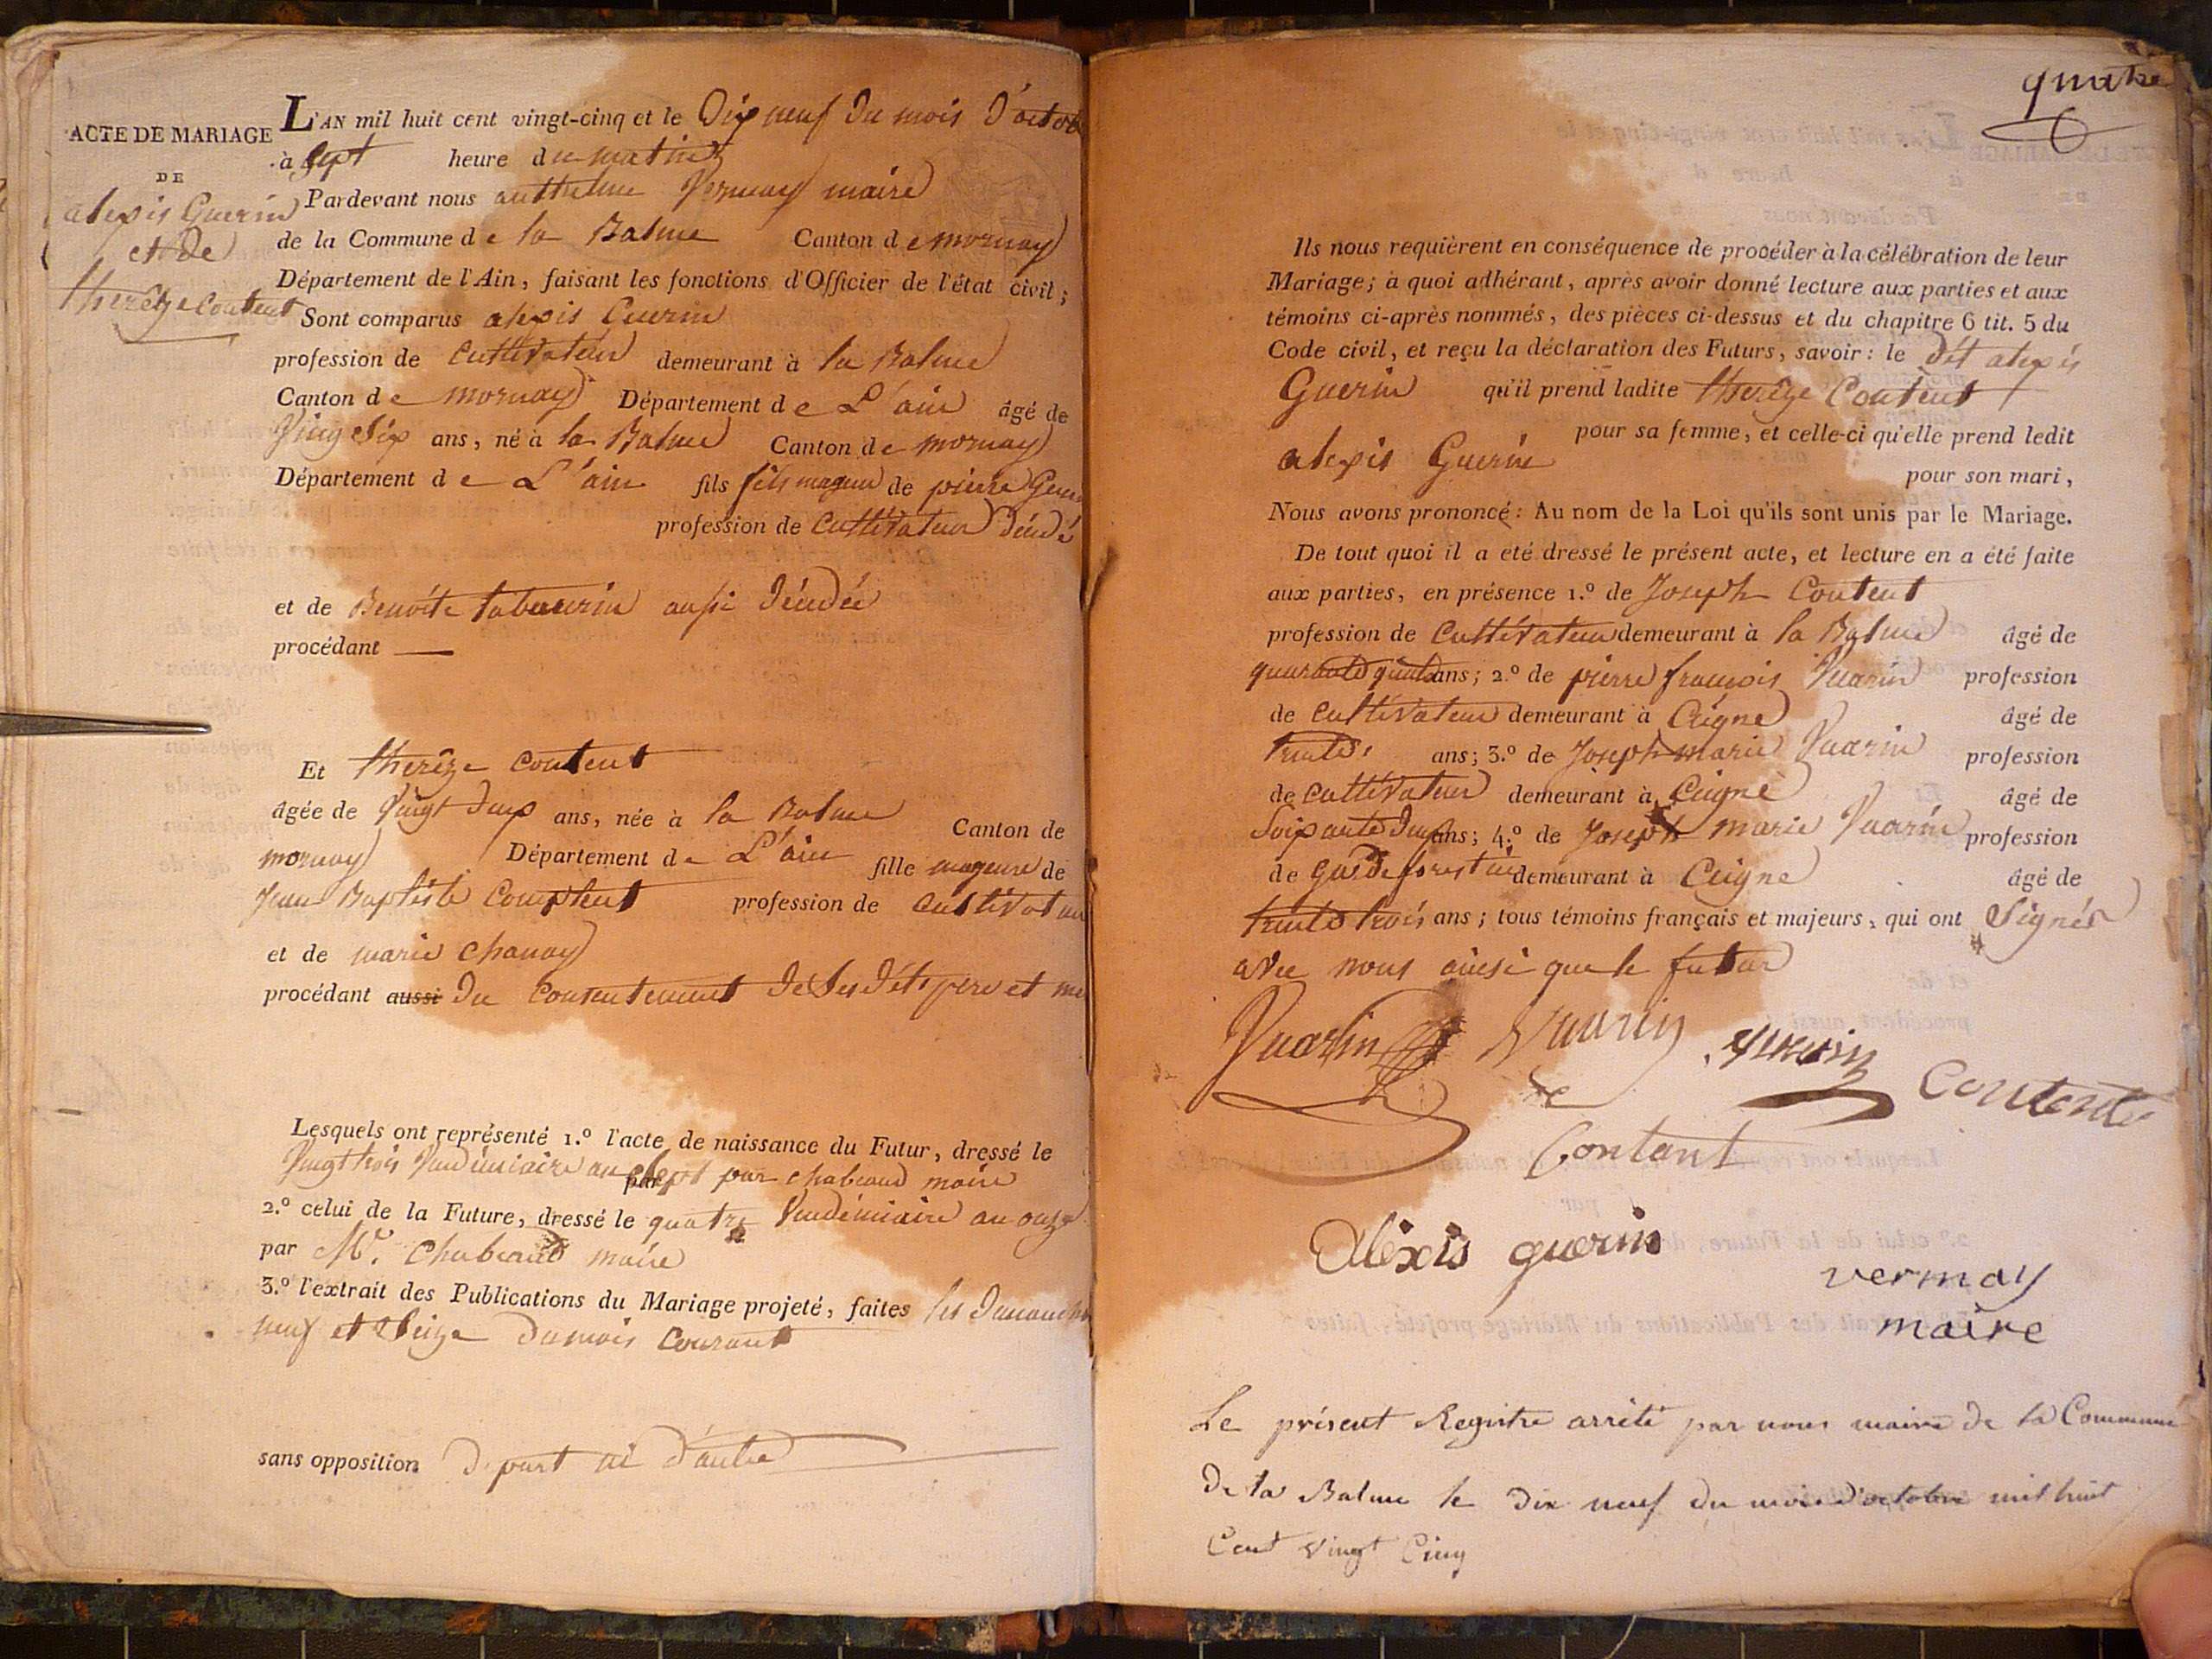 ACTE DE MARIAGE
DE
alexis Guerin
et de
therèze Content
L'AN mil huit cent vingt-cinq et le Dix neuf du mois d'octob
à sept heure du matin
Pardevant nous anthelme Vermay maire
de la Commune de la Balme Canton de mornay
Département de l'Ain, faisant les fonctions d'Officier de l'état civil;
Sont comparus alexis Guerin
profession de Cultivateur demeurant à la Balme
Canton de mornay Département de L'ain âgé de
Ving Six ans, né à la Balme Canton de mornay
Département de L'ain fils fils mageur de pierre Guer
profession de Cultivateur déudé
et de Benoite tabourin aussi déudée
procédant —
Et therèze Content
âgée de Vingt deux ans, née à la Balme Canton de
mornay Département de L'ain fille mageure de
Jean Baptiste Comptent profession de Cultivateur
et de marie Chanay
procédant aussi du Consentement de ses dits pere et me
Lesquels ont représenté 1.º l'acte de naissance du Futur, dressé le
Vingt trois Vendémiaire an sept par chabeaud maire
par
2.º celui de la Future, dressé le quatre Vendémiaire an onze
par Mr. Chabeaud maire
3.º l'extrait des Publications du Mariage projeté, faites les Dimanche
neuf et Seize du mois Courant
sans opposition de part ni d'autre
quatre
Ils nous requièrent en conséquence de procéder à la célébration de leur
Mariage; à quoi adhérant, après avoir donné lecture aux parties et aux
témoins ci-après nommés, des pièces ci-dessus et du chapitre 6 tit. 5 du
Code civil, et reçu la déclaration des Futurs, savoir: le dit alexis
Guerin qu'il prend ladite therèze Content
pour sa femme, et celle-ci qu'elle prend ledit
alexis Guerin
pour son mari,
Nous avons prononcé: Au nom de la Loi qu'ils sont unis par le Mariage.
De tout quoi il a été dressé le présent acte, et lecture en a été faite
aux parties, en présence 1.º de Joseph Content
profession de Cultivateur demeurant à la Balme âgé de
quarante quatre ans; 2.º de pierre françois Vuarin profession
de Cultivateur demeurant à Ceigne âgé de
trente ans; 3.º de Joseph marie Vuarin profession
de Cultivateur demeurant à Ceigne âgé de
Soixante deux ans; 4.º de Joseph marie Vuarin profession
de garde forestier demeurant à Ceigne âgé de
trente trois ans; tous témoins français et majeurs, qui ont Signés
avec nous ainsi que le futur
Vuarin Vuarin Vuarin Contente
Contant
Alexis guerin
vermay
maire
Le présent Registre arrêté par nous maire de la Commune
De la Balme le dix neuf du mois d'octobre mil huit
Cent Vingt Cinq